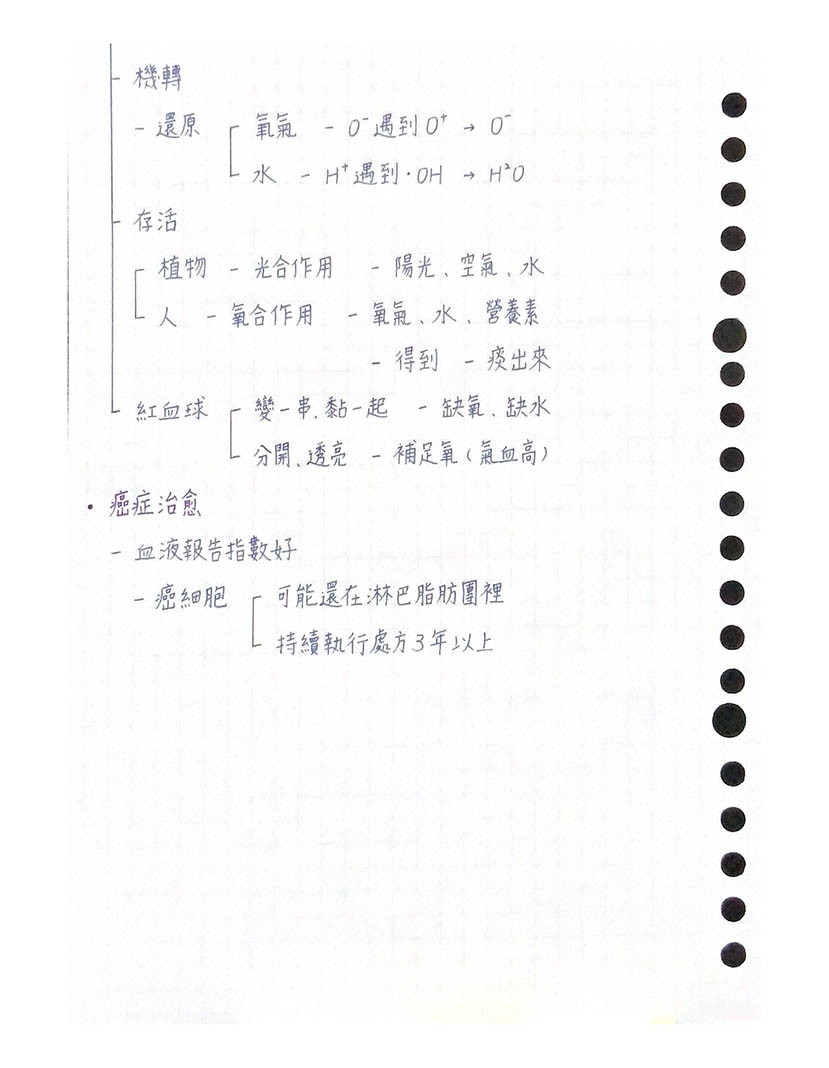 - 機轉
- 還原 氧氣 - O⁻遇到O⁺ → O⁻
水 - H⁺遇到·OH → H²O
- 存活
植物 - 光合作用 - 陽光、空氣、水
人 - 氧合作用 - 氧氣、水、營養素
- 得到 - 痰出來
紅血球 變一串、黏一起 - 缺氧、缺水
分開、透亮 - 補足氧(氣血高)
• 癌症治愈
- 血液報告指數好
- 癌細胞 可能還在淋巴脂肪團裡
持續執行處方3年以上